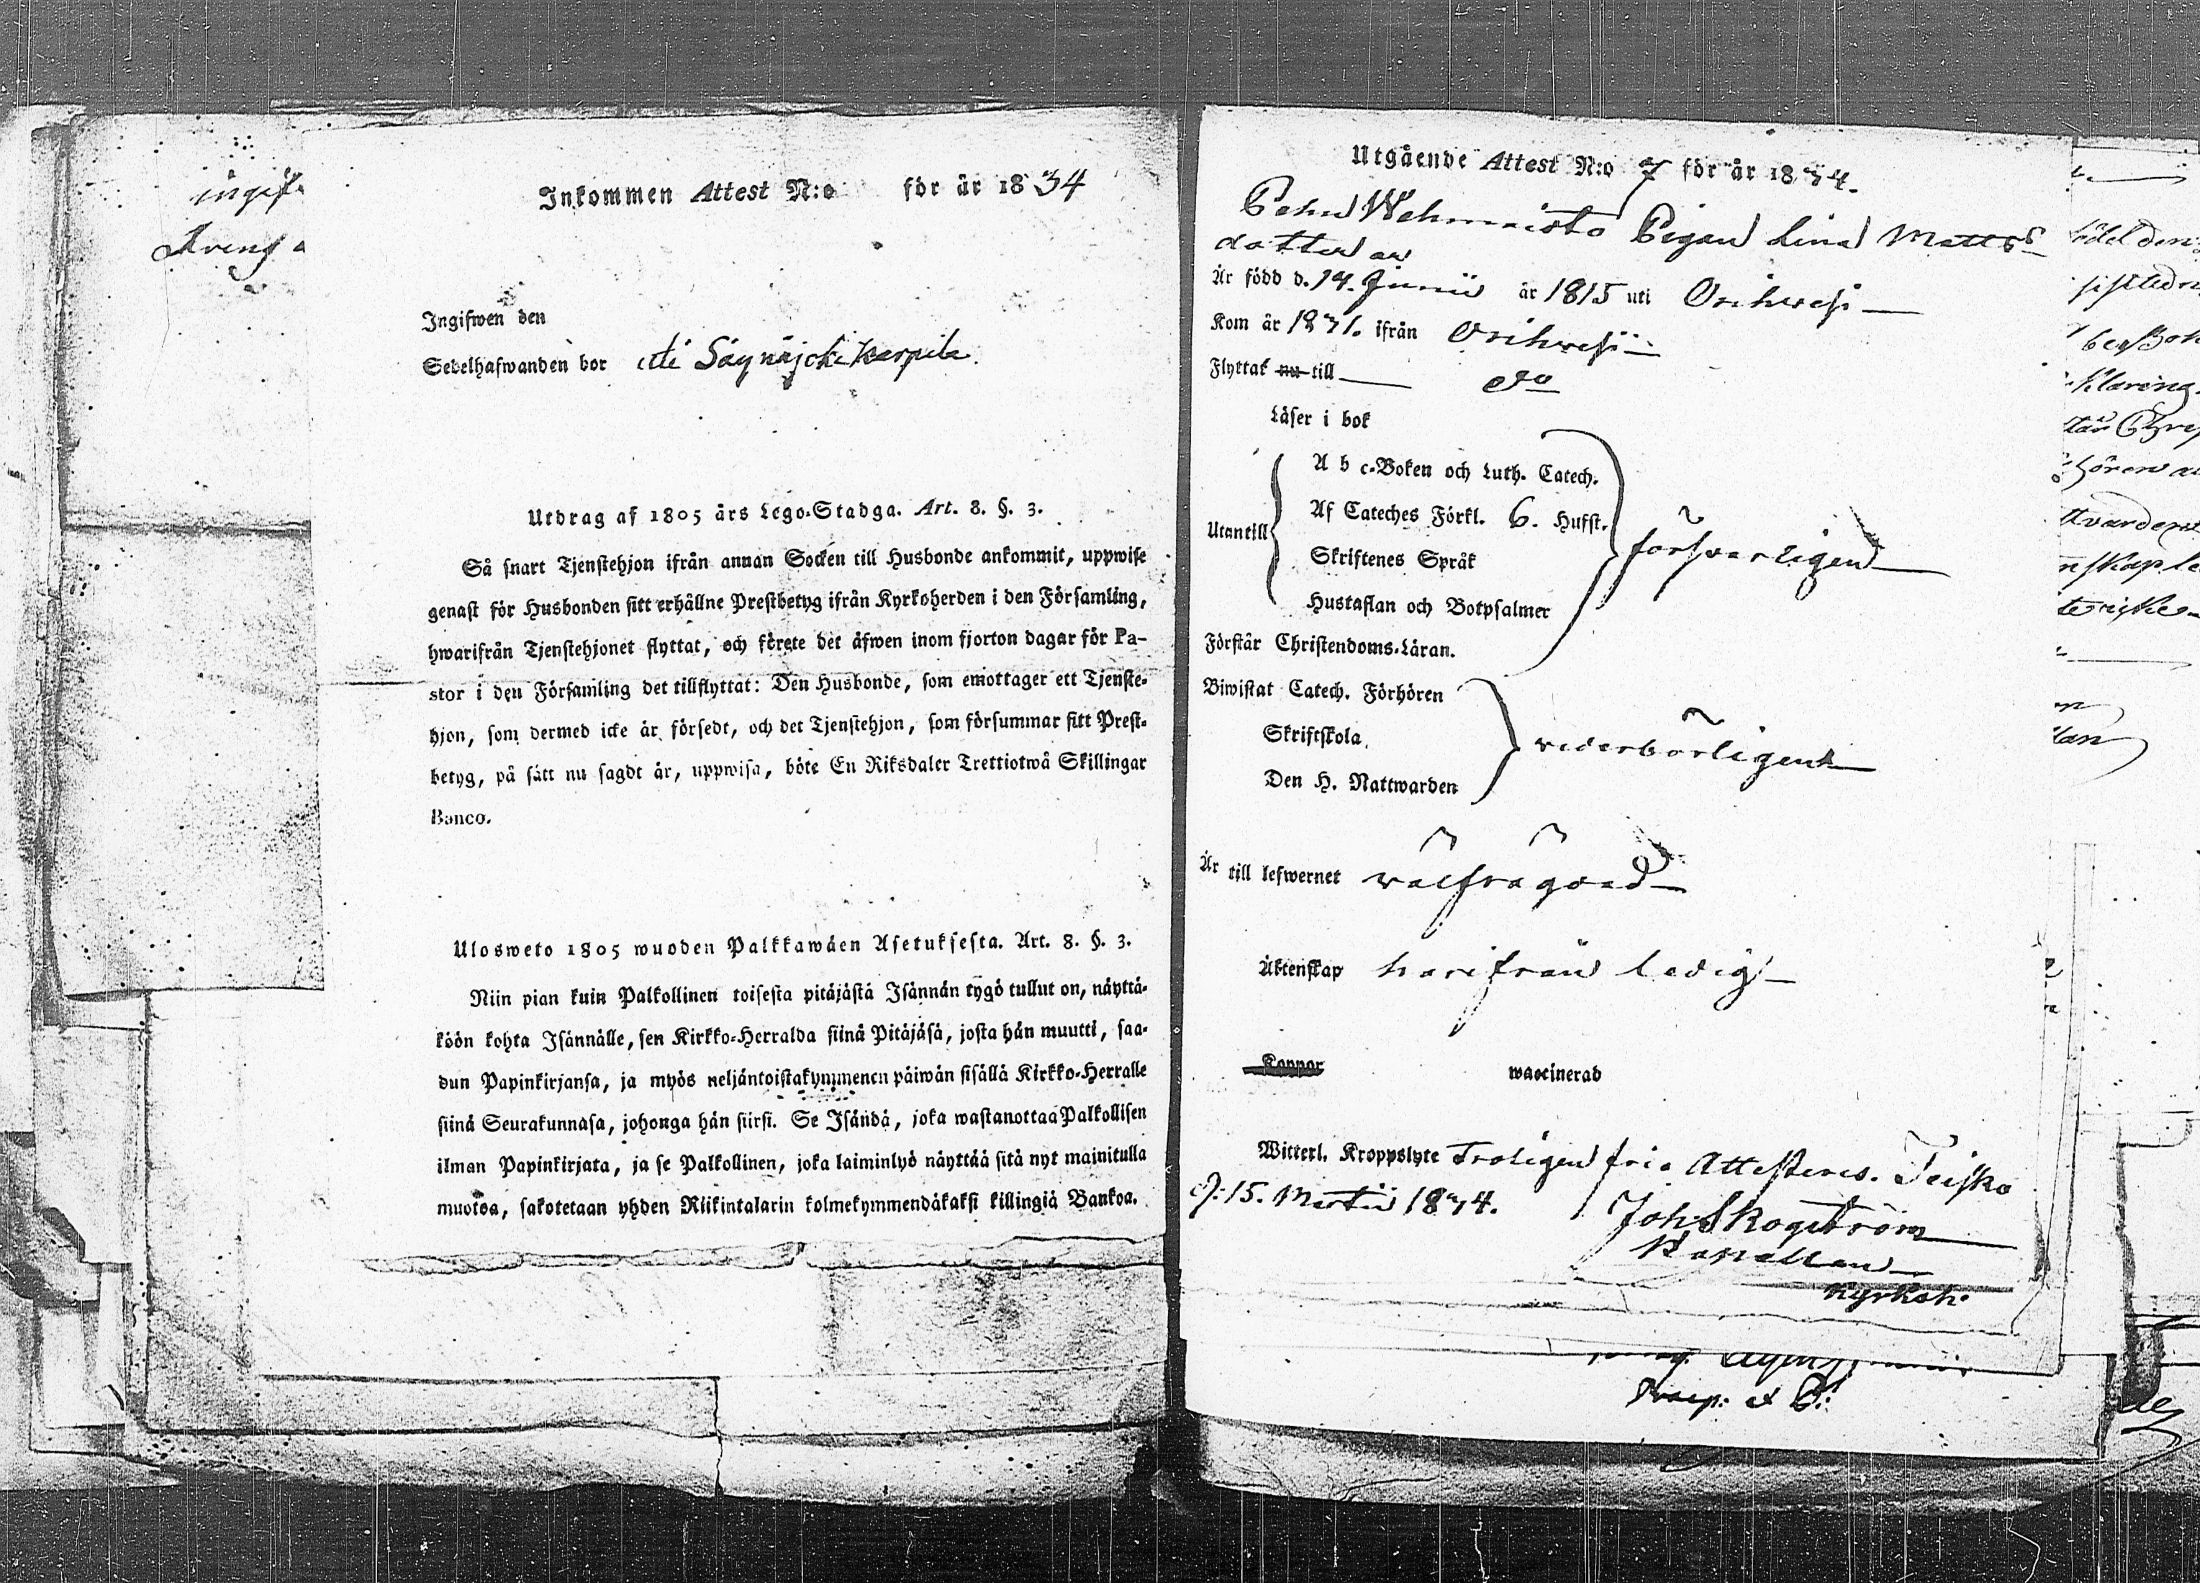 ingif.
Inkommen Attest N:o för år 1834
Ingifwen den
Sedelhafwanden bor uti Säynäjoki Karpila.
Utdrag af 1805 års Lego-Stadga. Art. 8. §. 3.
Så snart Tjenstehjon ifrån annan Socken till Husbonde ankommit, uppwise
genast för Husbonden sitt erhållne Prestbetyg ifrån Kyrkoherden i den Församling,
hwarifrån Tjenstehjonet flyttat, och förete det äfwen inom fjorton dagar för Pa-
stor i den Församling det tillflyttat: Den Husbonde, som emottager ett Tjenste-
hjon, som dermed icke är försedt, och det Tjenstehjon, som försummar sitt Prest-
betyg, på sätt nu sagdt är, uppwisa, böte En Riksdaler Trettiotwå Skillingar
Banco.
Ulosweto 1805 wuoden Palkkawäen Asetuksesta. Art. 8. §. 3.
Niin pian kuin Palkollinen toisesta pitäjästä Isännän tygö tullut on, näyttä-
köön kohta Isännälle, sen Kirkko-Herralda siinä Pitäjäsä, josta hän muutti, saa-
dun Papinkirjansa, ja myös neljäntoistakymmenen päiwän sisällä Kirkko-Herralle
siinä Seurakunnasa, johonga hän siirsi. Se Isändä, joka wastanottaa Palkollisen
ilman Papinkirjata, ja se Palkollinen, joka laiminlyö näyttää sitä nyt mainitulla
muotoa, sakotetaan yhden Riikintalarin kolmekymmendäkaksi killingiä Bankoa.
Utgående Attest N:o 7 för år 1834.
Wehmaisto Pigan Lina Matts
dotter ar
Är född d. 14. Junii år 1815 uti Orihwesi
Kom år 1831. ifrån Orihwesi
Flyttat nu till do
Läser i bok
A b c-Boken och Luth. Catech.
Af Cateches Förkl. 6. Hufst.
Utantill försvarligen
Skriftenes Språk
Hustaflan och Botpsalmer
Förstår Christendoms-Läran.
Biwistat Catech. Förhören
Skriftskola wederbörligen
Den H. Nattwarden
Är till lefwernet wälfrägdad
Äktenskap härifrån ledig
Koppor waccinerad
Witterl. Kroppslyte Troligen fri. Attesteres. Teisko
d. 15. Martii 1834.
Joh Skogström
Kapellan
Kyrkoh.
Praep. et P.